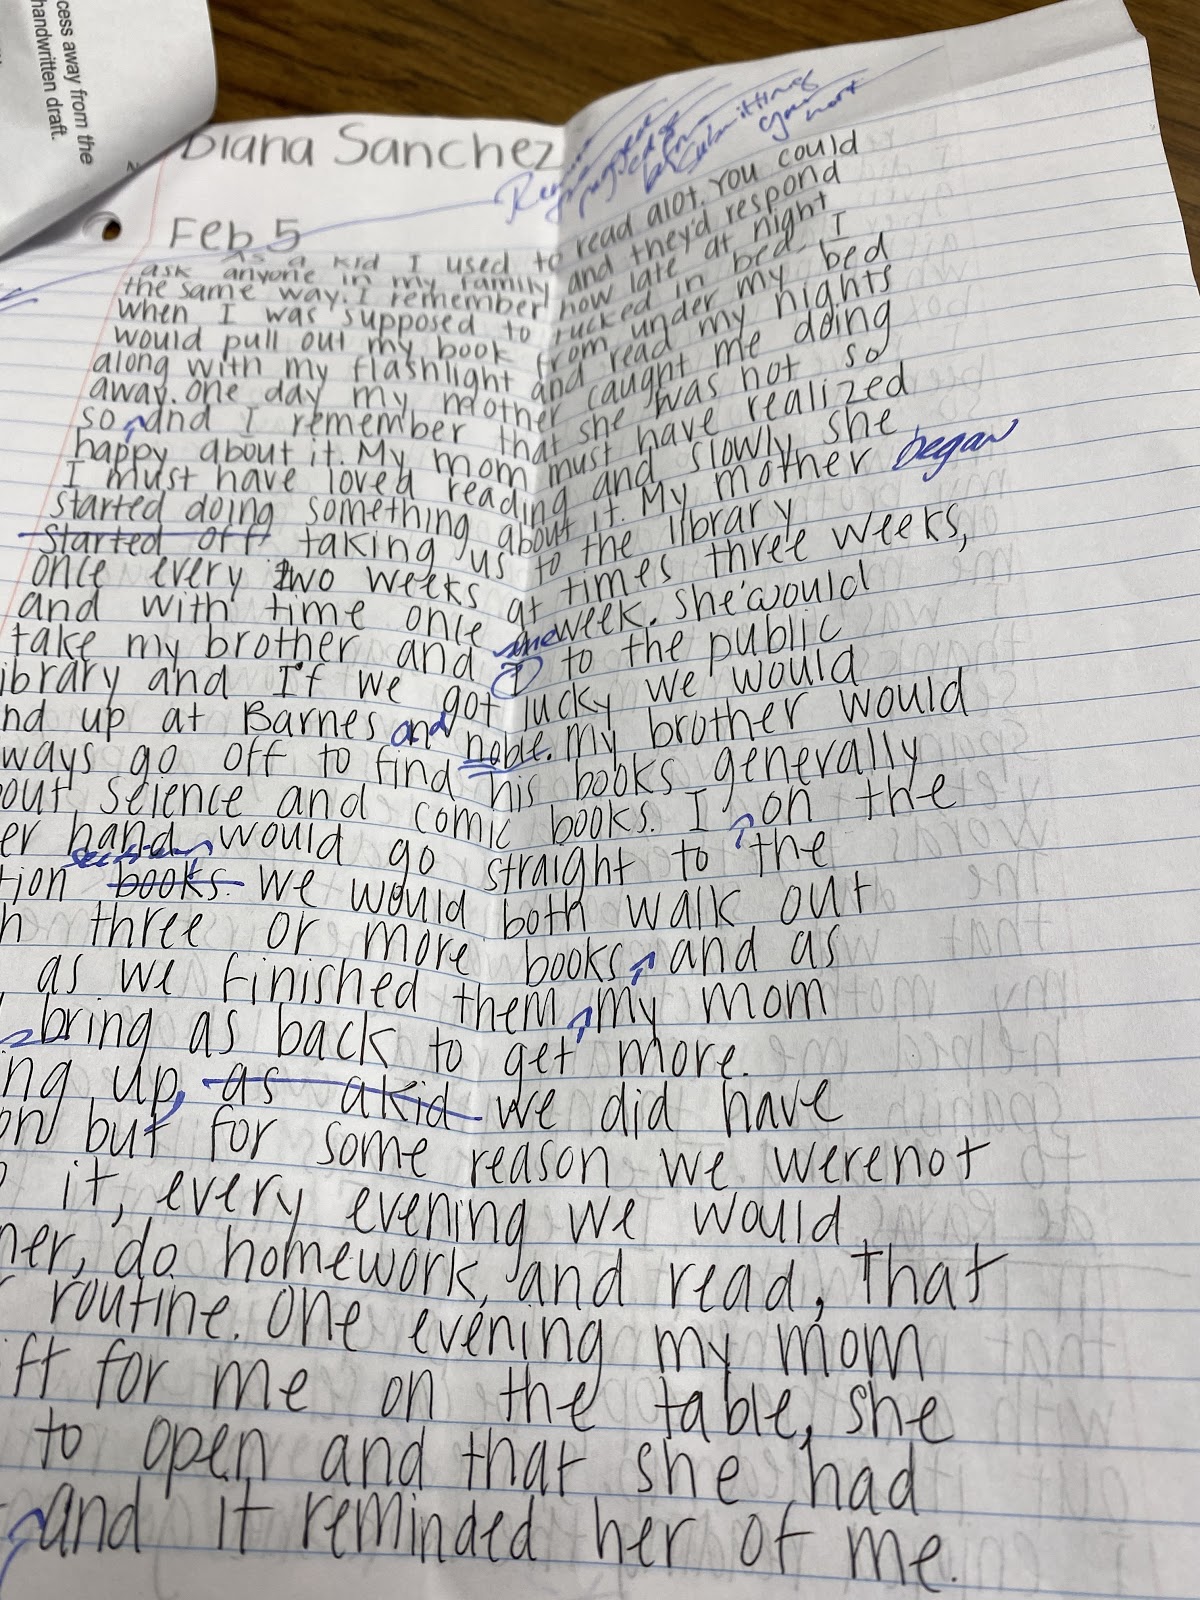 cess away from the
handwritten draft.
Diana Sanchez
before
submitting
your
Feb 5
As a kid I used to read alot. You could
ask anyone in my family and they'd respond
the same way. I remember how late at night
when I was supposed to tucked in bed I
would pull out my book from under my bed
along with my flashlight and read my nights
away. One day my mother caught me doing
so and I remember that she was not so
happy about it. My mom must have realized
I must have loved reading and slowly she
started doing something about it. My mother began
started off taking us to the library
once every two weeks at times three weeks,
and with time once week. She would
take my brother and I to the public
ibrary and If we got lucky we would
nd up at Barnes and noble. my brother would
ways go off to find his books generally
out science and comic books. I on the
er hand would go straight to the
section
tion books. We would both walk out
h three or more books and as
as we finished them my mom
bring as back to get more.
ng up, as a kid we did have
on but for some reason we werenot
it, every evening we would
ner, do homework, and read, that
r routine. One evening my mom
ift for me on the table, she
to open and that she had
and it reminded her of me.